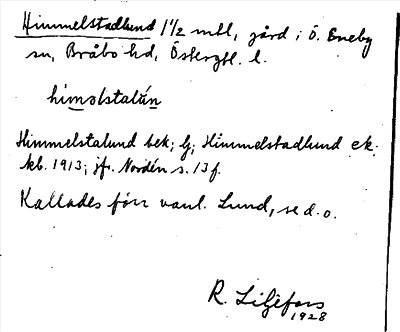 Himmelstadlund 1 1/2 mtl, gård i Ö. Eneby
sn, Bråbo hd, Östergtl. l.
himəlstalùn
Himmelstalund bek; Himmelstadlund ek.
kb. 1913; jfr. Nordén s. 13 f.
Kallades förr vanl. Lund, se d. o.
R. Liljefors
1928